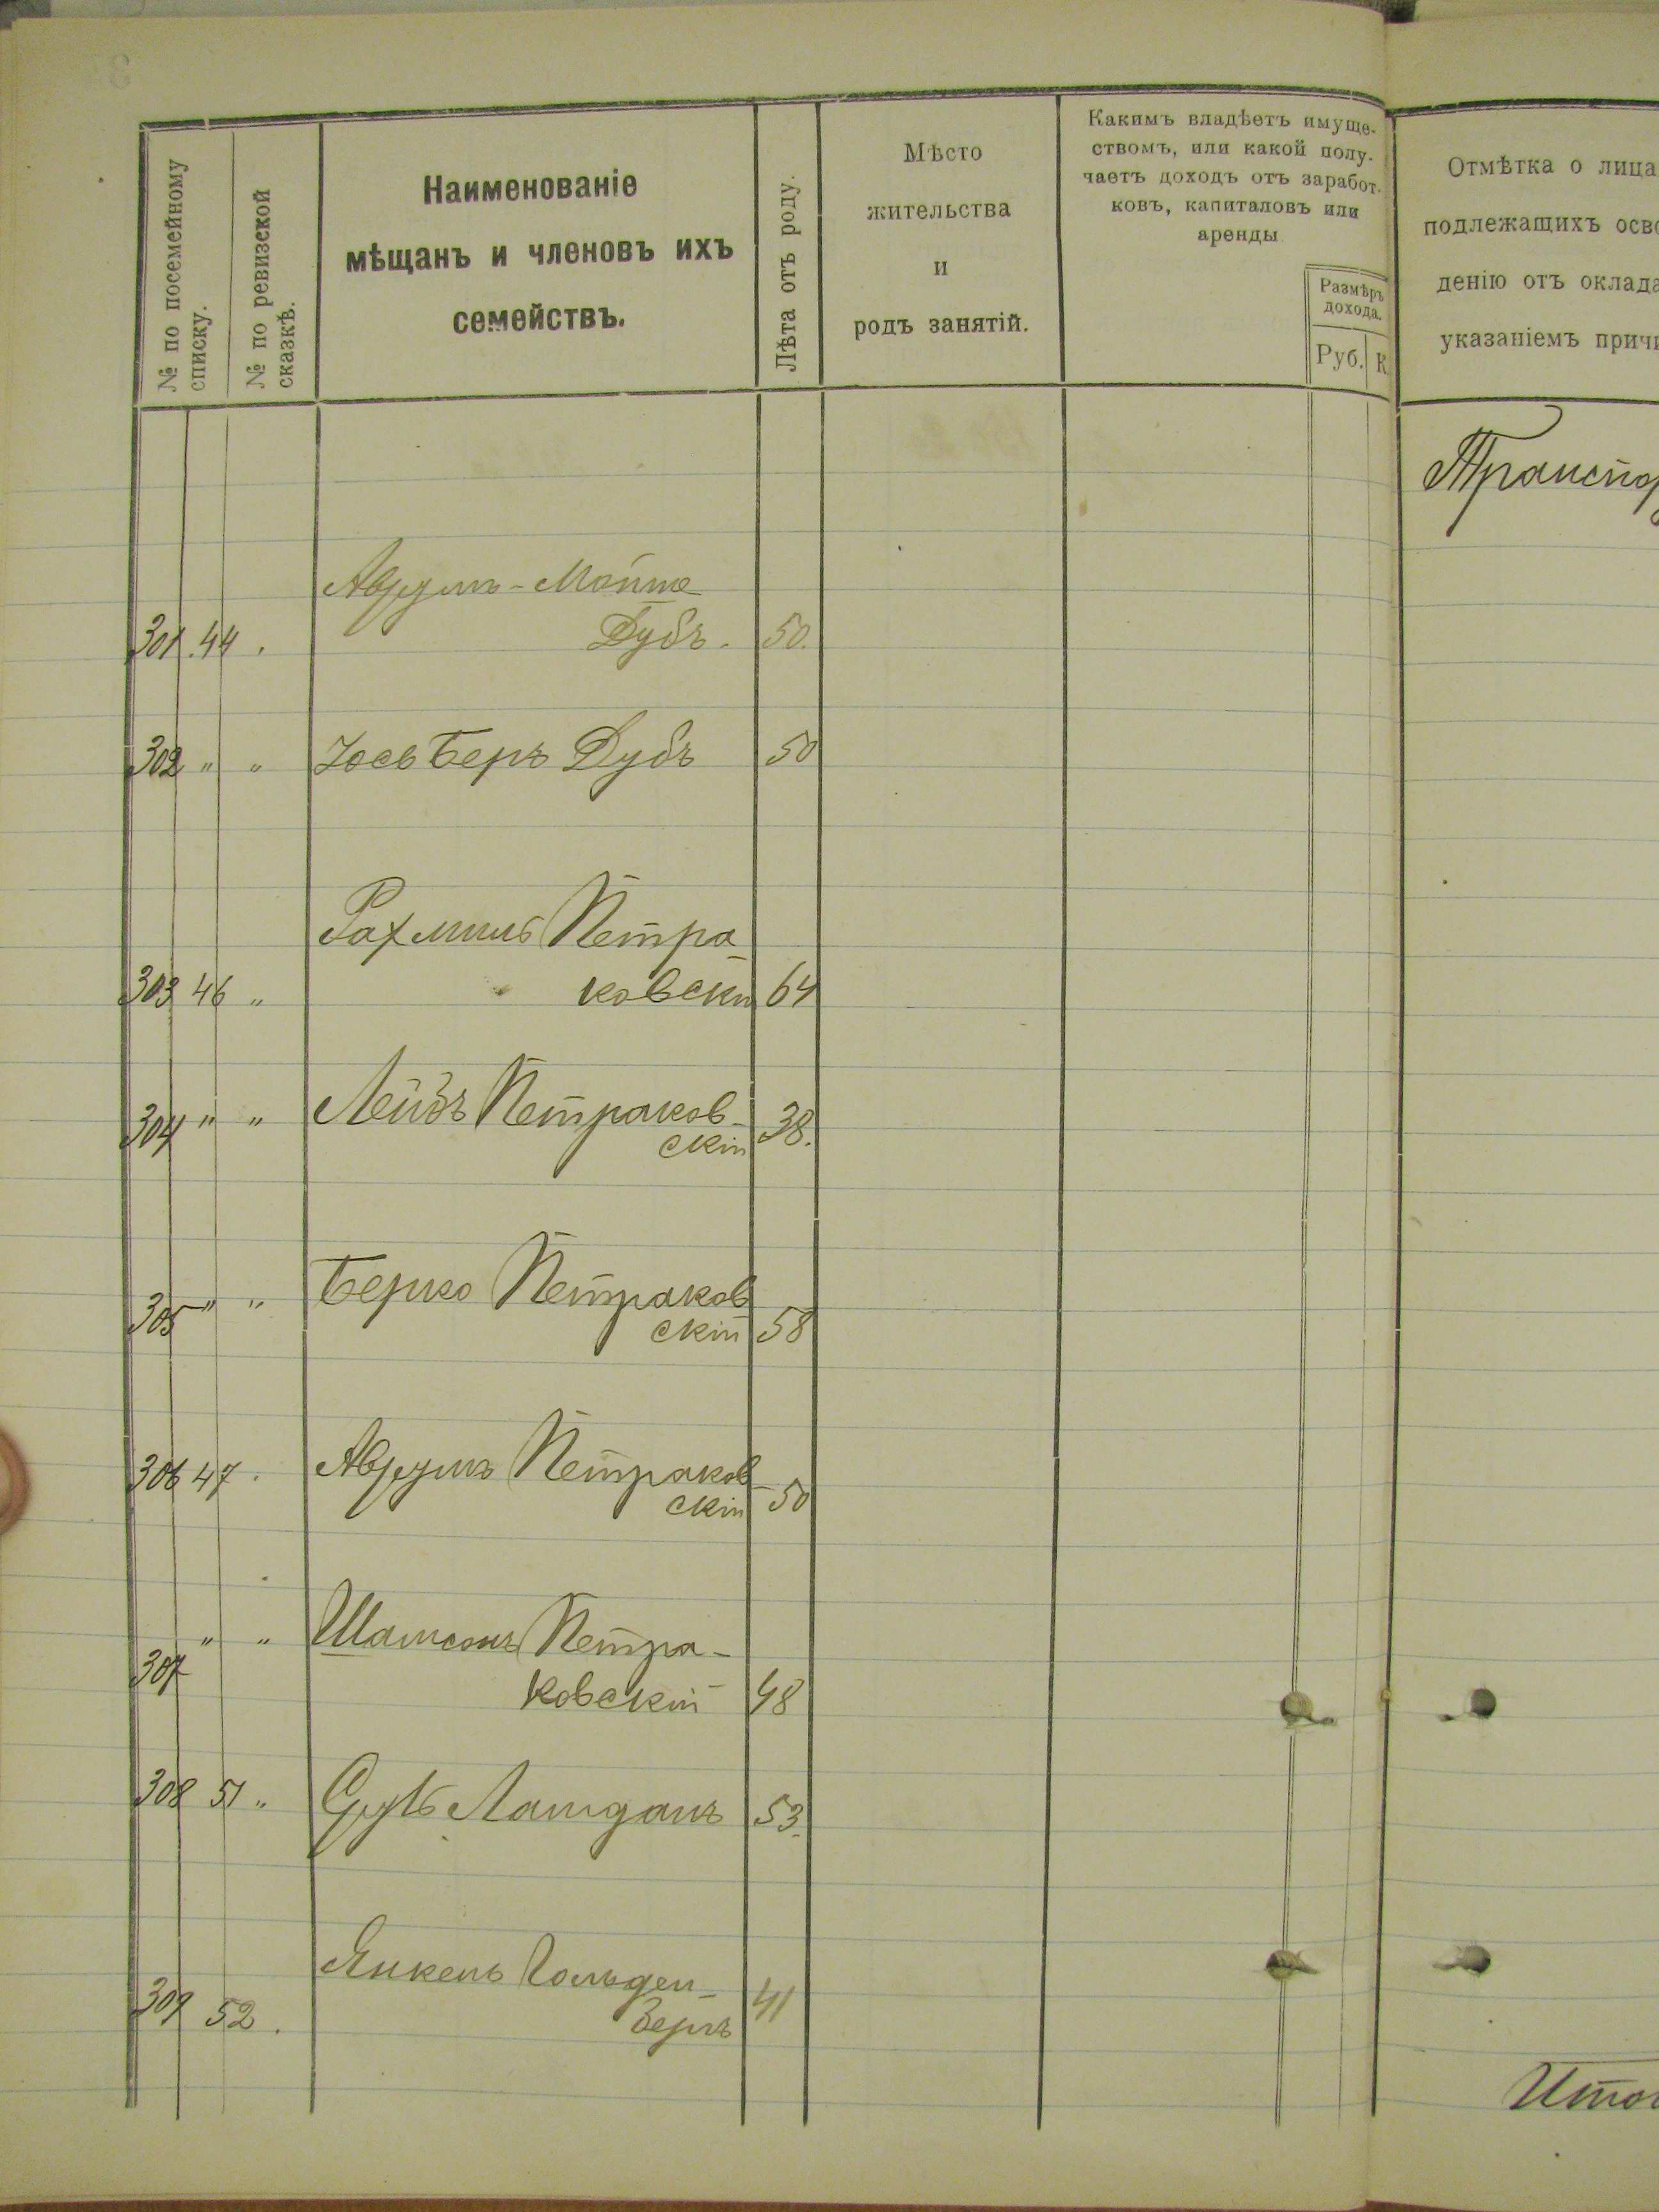 № по посемейному
списку.
№ по ревизской
сказкѣ.
Наименованіе
мѣщанъ и членовъ ихъ
семействъ.
Лѣта отъ роду.
Мѣсто
жительства
и
родъ занятій.
Какимъ владѣетъ имуще-
ствомъ, или какой полу-
чаетъ доходъ отъ заработ-
ковъ, капиталовъ или
аренды
Размѣръ
дохода.
Руб. К.
Отмѣтка о лица
подлежащихъ осво
денію отъ оклада
указаніемъ причи
Транспор
Аврумъ-Мойше
301. 44 . Дубъ. 50.
302 " " Юсь Беръ Дубъ 50
Рахмиль Петра-
303 46 " ковскій 64
304 " " Лейбъ Петраков-
скій 38.
305 " " Берко Петраков
скій 58
306 47 . Аврумъ Петраков-
скій 50
307 " " Шамсонъ Петра-
ковскій 48
308 51 " Сруль Ламданъ 53.
Янкель Гольден-
309 52 . бергъ 41
Итог